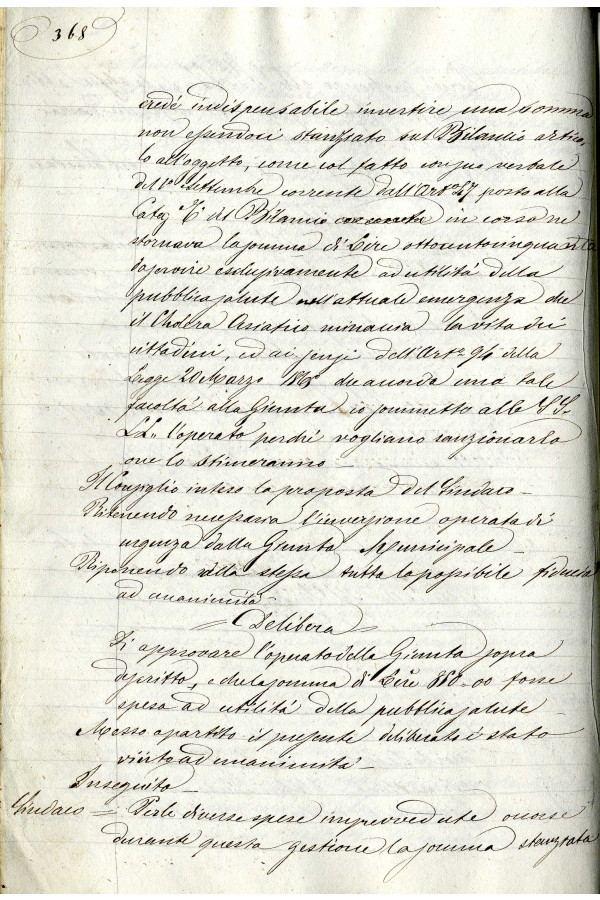 368
credé indispensabile invertire una somma
non essendoci stanziato sul Bilancio artico-
lo all'oggetto, come col fatto con suo verbale
del 1° Settembre corrente dall'Art° 27 posto alla
Catg: del Bilancio in corso ne
stornava la somma di Lire ottocentocinquanta
da servire esclusivamente ad utilità della
pubblica salute nell'attuale emergenza che
il Cholera Asiatico minaccia la vita dei
cittadini, ed ai sensi dell'Art° 94 della
Legge 20 Marzo 1865 che accorda una tale
facoltà alla Giunta io sommetto alle SS.
LL. l'operato perché vogliano sanzionarlo
ove lo stimeranno
Il Consiglio inteso la proposta del Sindaco _
Ritenendo necessaria l'inversione operata di
urgenza dalla Giunta Municipale _
Riponendo alla stessa tutta la possibile fiducia
ad unanimità _
= Delibera =
Di approvare l'operato della Giunta sopra
descritto, e che la somma di Lire 850-00 fosse
spesa ad utilità della pubblica salute
Messo a partito il presente deliberato è stato
vinto ad unanimità _
Inseguito _
Sindaco = Per le diverse spese imprevedute occorse
durante questa gestione la somma stanziata